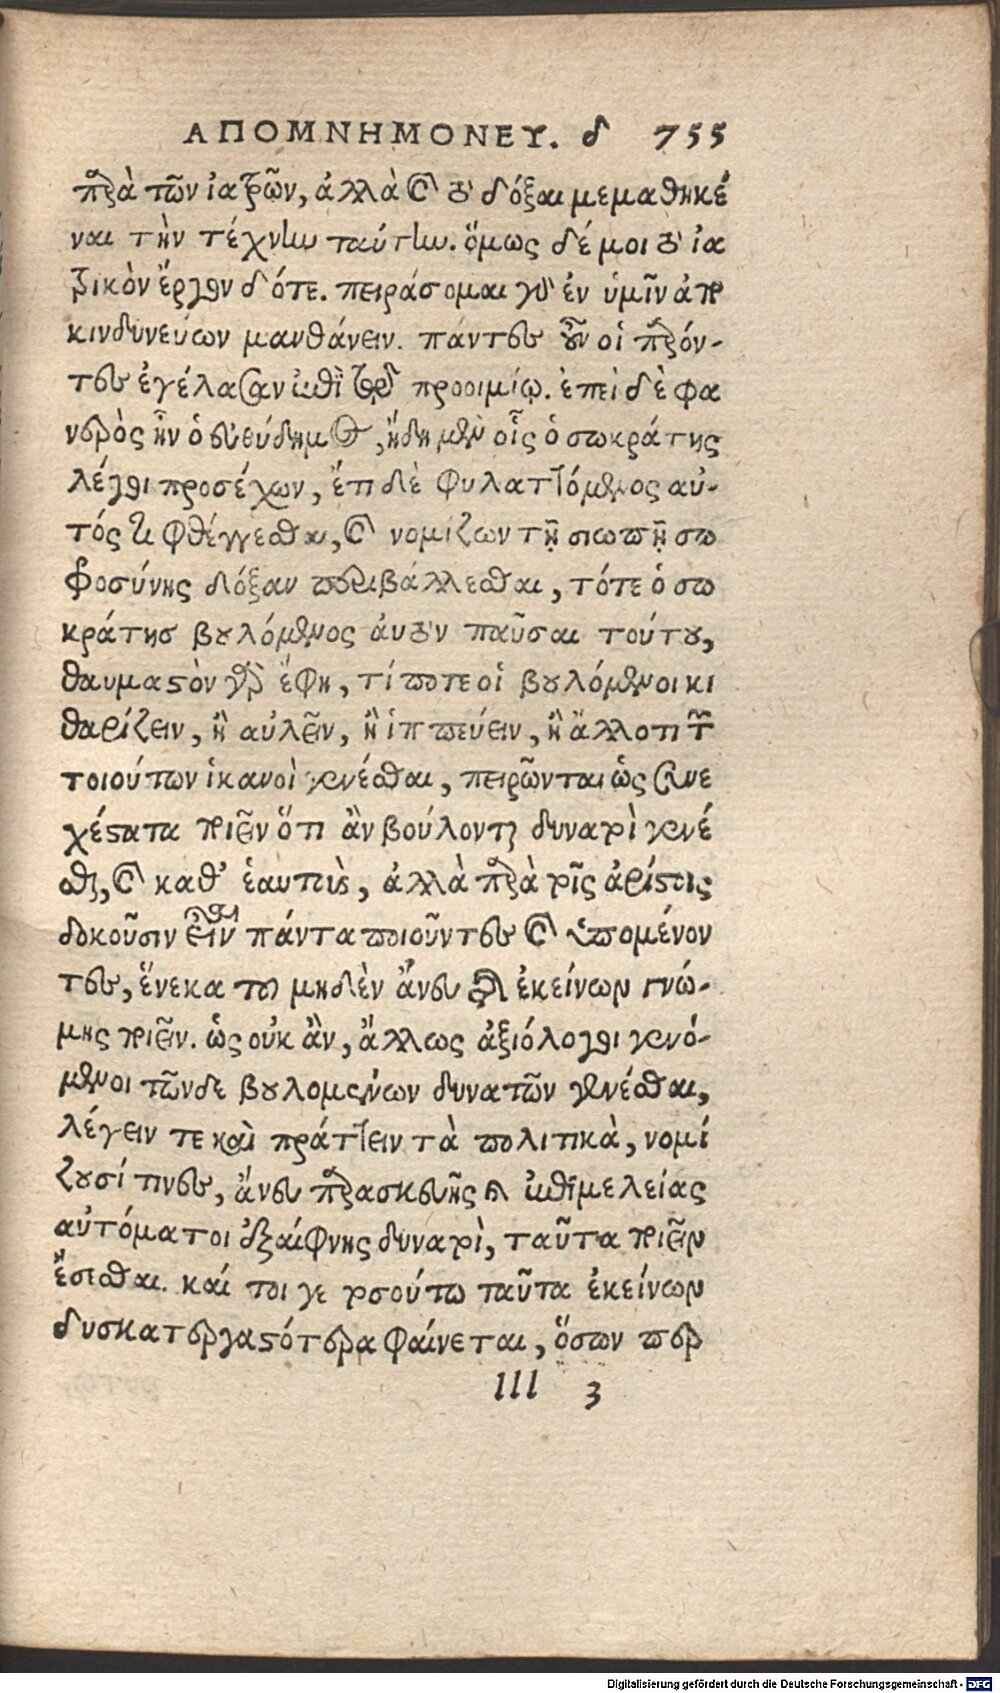 ΑΠΟΜΝΗΜΟΝΕΥ. δ 755
παρὰ τῶν ἰατρῶν, ἀλλὰ καὶ τὸ δόξαι μεμαθηκέ
ναι τὴν τέχνην ταύτην. ὅμως δέ μοι τὸ ἰα
τρικὸν ἔργον δότε. πειράσομαι γὰρ ἐν ὑμῖν ἀπο
κινδυνεύων μανθάνειν. πάντες οὖν οἱ παρόν-
τες ἐγέλασαν ἐπὶ τῷ προοιμίῳ. ἐπεὶ δὲ φα
νερὸς ἦν ὁ εὐθύδημος, ἤδη μὲν οἷς ὁ σωκράτης
λέγοι προσέχων, ἔτι δὲ φυλαττόμενος αὐ-
τός τι φθέγγεσθαι, καὶ νομίζων τῇ σιωπῇ σω
φροσύνης δόξαν περιβάλλεσθαι, τότε ὁ σω
κράτης βουλόμενος αὐτὸν παῦσαι τούτου,
θαυμαστὸν γὰρ ἔφη, τί ποτε οἱ βουλόμενοι κι
θαρίζειν, ἢ αὐλεῖν, ἢ ἱππεύειν, ἢ ἄλλο τι τῶν
τοιούτων ἱκανοὶ γενέσθαι, πειρῶνται ὡς συνε
χέστατα ποιεῖν ὅτι ἂν βούλονται δυνατοὶ γενέ
σθαι, καὶ καθ' ἑαυτοὺς, ἀλλὰ παρὰ τοῖς ἀρίστοις
δοκοῦσιν εἶναι πάντα ποιοῦντες καὶ ὑπομένον
τες, ἕνεκα τοῦ μηδὲν ἄνευ τῆς ἐκείνων γνώ-
μης ποιεῖν. ὡς οὐκ ἂν, ἄλλως ἀξιόλογοι γενό-
μενοι τῶνδε βουλομένων δυνατῶν γενέσθαι,
λέγειν τε καὶ πράττειν τὰ πολιτικὰ, νομί
ζουσί τινες, ἄνευ παρασκευῆς καὶ ἐπιμελείας
αὐτόματοι ἐξαίφνης δυνατοὶ, ταῦτα ποιεῖν
ἔσεσθαι. καί τοι γε τοσούτω ταῦτα ἐκείνων
δυσκατεργαστότερα φαίνεται, ὅσων περ
lll 3
Digitalisierung gefördert durch die Deutsche Forschungsgemeinschaft - DFG